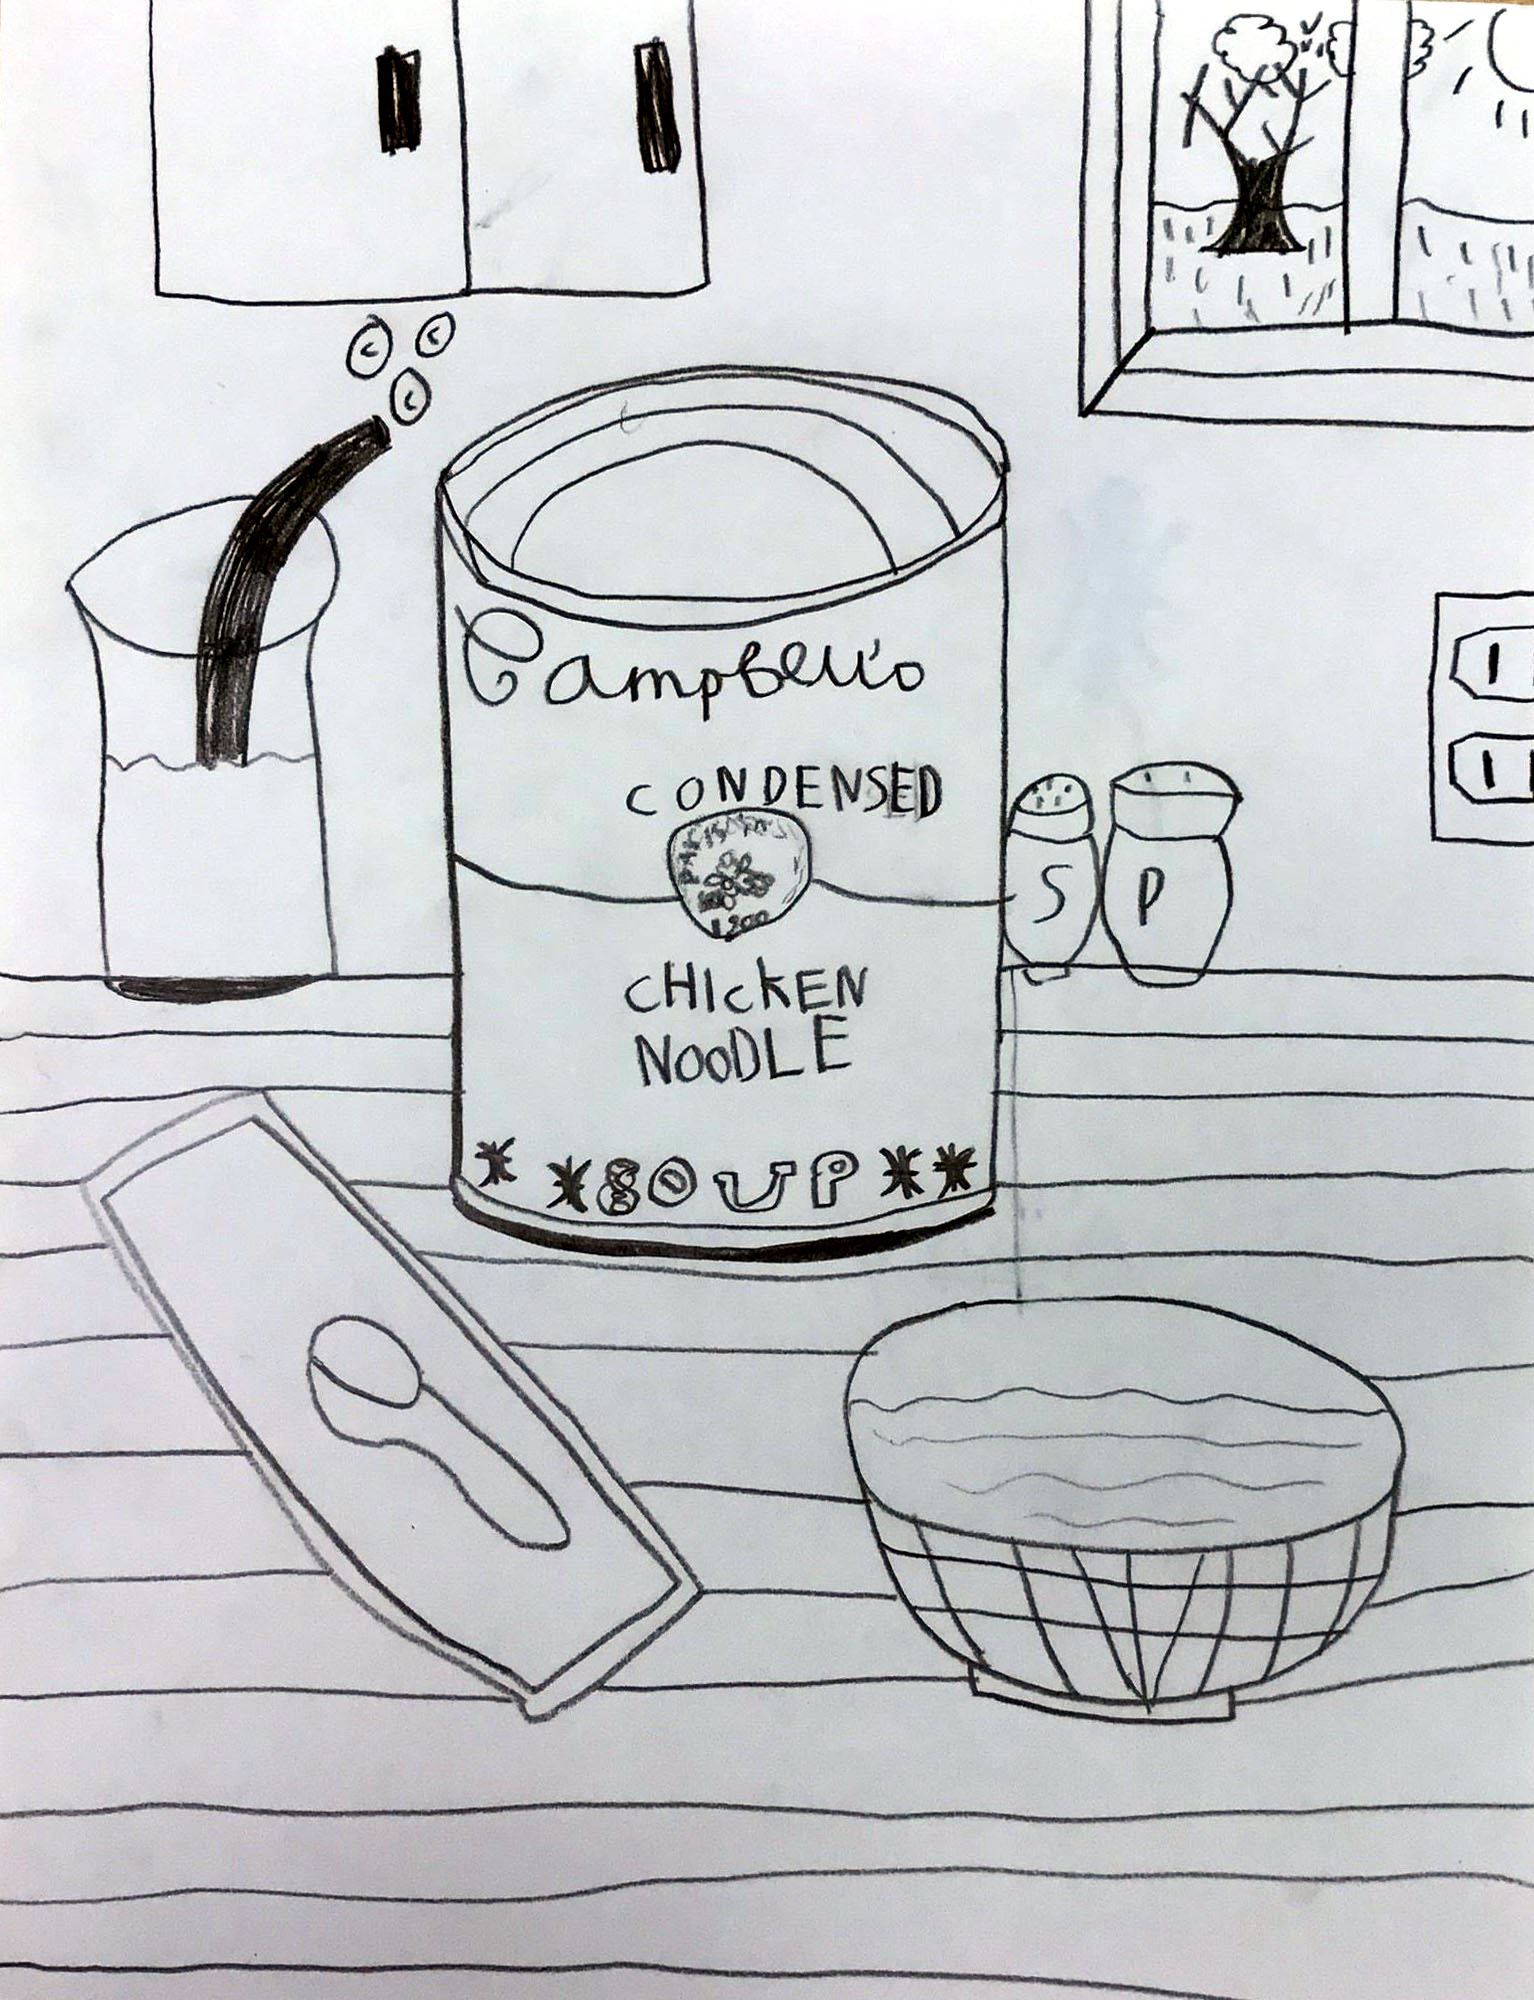 Campbell's
CONDENSED
S P
CHICKEN
NOODLE
SOUP